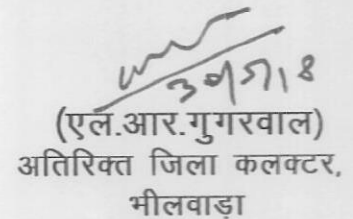 (एल.आर.गुगरवाल)
अतिरिक्त जिला कलक्टर,
भीलवाड़ा